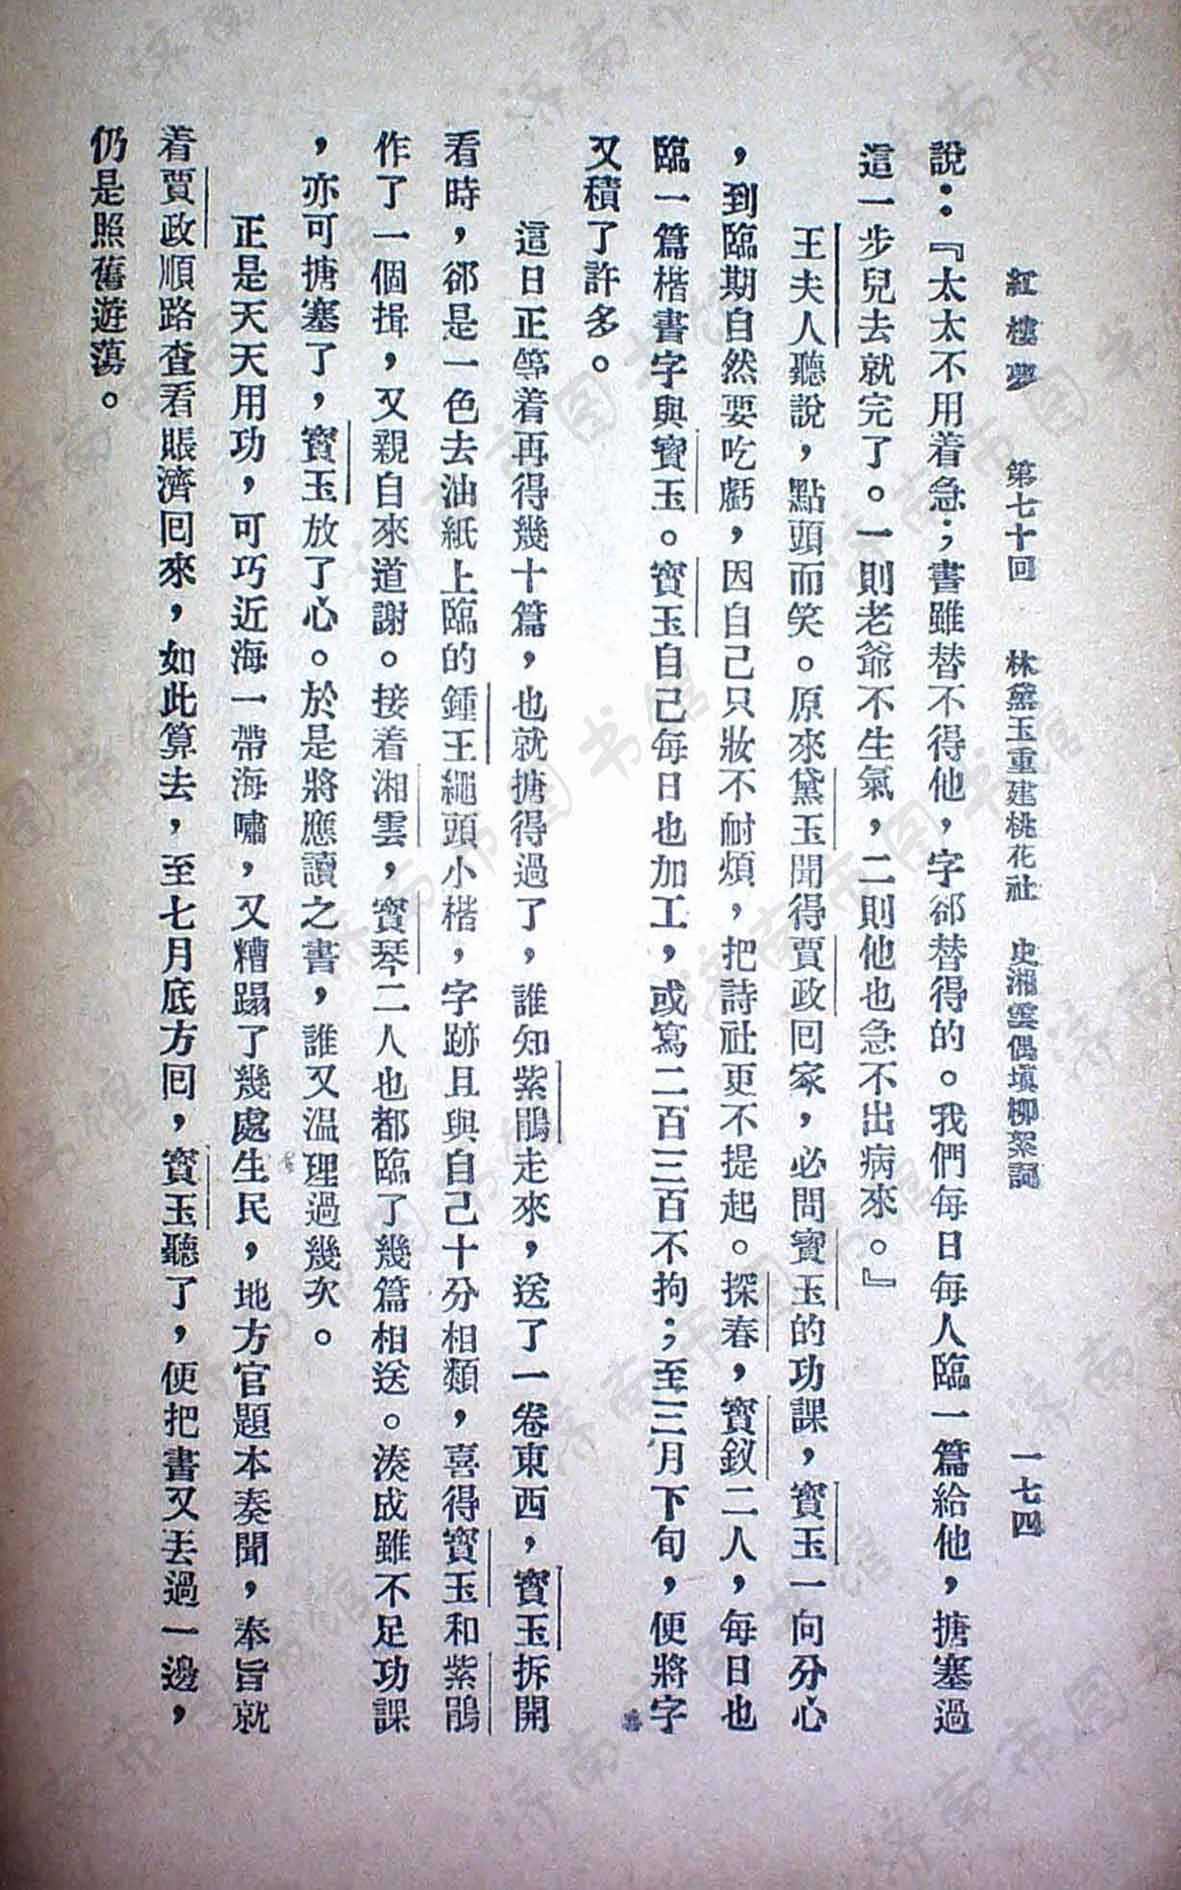 紅樓夢 第七十回 林黛玉重建桃花社 史湘雲偶填柳絮詞 一七四
說：『太太不用着急；書雖替不得他，字卻替得的。我們每日每人臨一篇給他，搪塞過
這一步兒去就完了。一則老爺不生氣，二則他也急不出病來。』
王夫人聽說，點頭而笑。原來黛玉聞得賈政回家，必問寶玉的功課，寶玉一向分心
，到臨期自然要吃虧，因自己只妝不耐煩，把詩社更不提起。探春，寶釵二人，每日也
臨一篇楷書字與寶玉。寶玉自己每日也加工，或寫二百三百不拘；至三月下旬，便將字
又積了許多。
這日正等着再得幾十篇，也就搪得過了，誰知紫鵑走來，送了一卷東西，寶玉拆開
看時，卻是一色去油紙上臨的鍾王繩頭小楷，字跡且與自己十分相類，喜得寶玉和紫鵑
作了一個揖，又親自來道謝。接着湘雲，寶琴二人也都臨了幾篇相送。湊成雖不足功課
，亦可搪塞了，寶玉放了心。於是將應讀之書，誰又温理過幾次。
正是天天用功，可巧近海一帶海嘯，又糟蹋了幾處生民，地方官題本奏聞，奉旨就
着賈政順路查看賑濟回來，如此算去，至七月底方回，寶玉聽了，便把書又丟過一邊，
仍是照舊遊蕩。
济南市图书馆